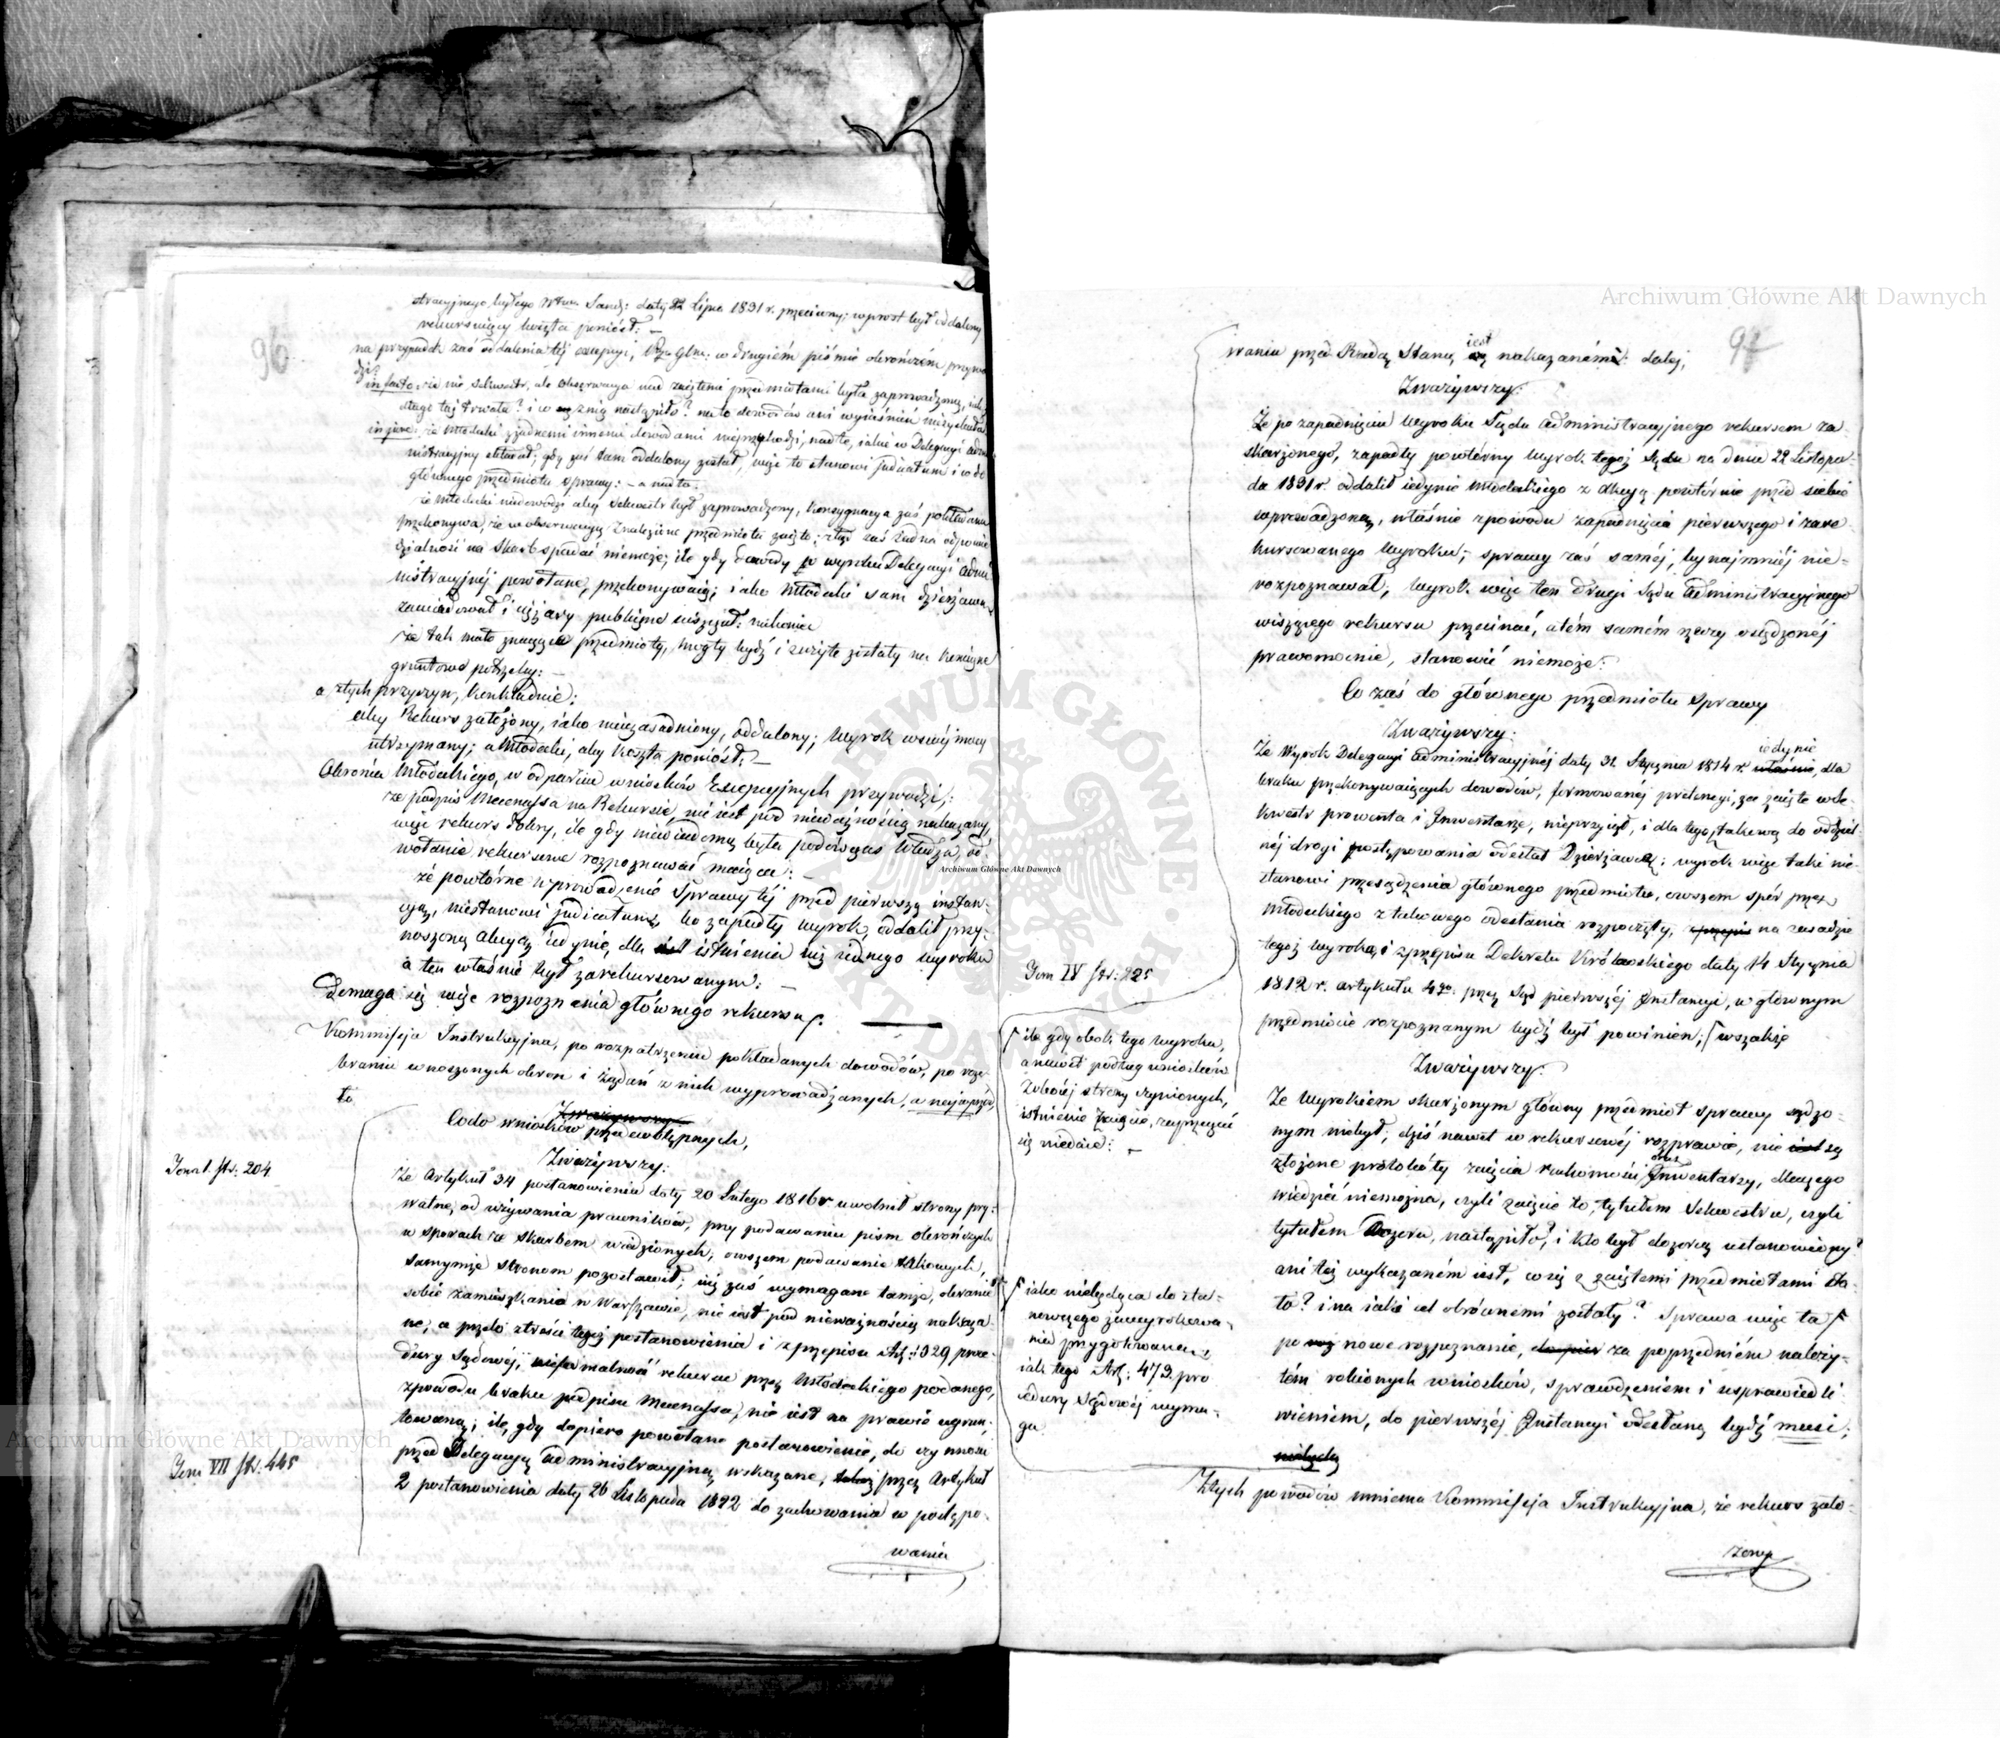 96
stracyjnego byłego Wtwa Sand: daty 22 Lipca 1831 r. przeciwny; wprost był oddalony
rekursujący koszta poniósł: —
na przypadek zaś oddalenia tej excepcyi, w drugiém piśmie obrończém przywo
dzi:
in facto że nie sekwestr, ale obserwacya nad zajętemi przedmiotami była zaprowadzoną, jak
długo taż trwała? i co z nią nastąpiło? na to dowodów ani wyjaśnień
in jure: że Młodecki żadnemi innemi dowodami nieprzychodzi, nadto, jakie w Delegacyi Admi
nistracyjnej składał; gdy zaś tam oddalony został, więc to stanowi judicatum i co do
głównego przedmiotu sprawy: — a nadto:
że Młodecki niedowodzi aby Sekwestr był zaprowadzony, konsygnacya zaś pokładana
przekonywa, że w obserwacyą znalezione przedmiota zajęto; ztąd zaś żadna odpowie
dzialność na Skarb spadać niemoże; ile gdy dowody w wyroku Delegacyi Admi
nistracyjnéj powołane, przekonywaią; iako Młodecki sam dzierżawą
zawiadował i ciężary publiczne uiszczał: nakoniec
że tak mało znaczące przedmioty, mogły bydź i zużyte zostały na konieczne
gruntowe potrzeby: —
a z tych przyczyn, konkluduie:
aby Rekurs założony, iako nieuzasadniony, oddalony; wyrok w swéj mocy
utrzymany; a Młodecki, aby koszta poniósł: —
Obrońca Młodeckiego, w odparciu wniosków Excepcyjnych przywodzi:
że podpis Mecenassa na Rekursie, nie iest pod nieważnością nakazany,
więc rekurs dobry, ile gdy niewiadomą była podówczas Władza, od-
wołanie rekursowe rozpoznawać maiąca: —
że powtórne wprowadzenie Sprawy téj przed pierwszą instan-
cyą, niestanowi judicatum, bo zapadły wyrok, oddalił przy-
noszoną akcyą iedynie, dla istnienia iuż iednego wyroku
a ten właśnie był zarekursowanym: —
Domaga się więc rozpoznania głównego rekursu.
Kommissya Instrukcyjna, po rozpatrzeniu pokładanych dowodów, po roze-
braniu wnoszonych obron i żądań z nich wyprowadzanych, a nayprzód
Zważywszy
Codo wniosków przedwstępnych,
Zważywszy:
Tom I. str: 204
Że Artykuł 34 postanowienia daty 20 Lutego 1816 r. uwolnił strony pry-
watne, od używania prawników, przy podawaniu pism obrończych
w sporach ze Skarbem wiedzionych, owszem podawanie takowych,
samymże stronom pozostawił; iuż zaś wymagane tamże, obranie
sobie zamieszkania w Warszawie, nie iest pod nieważnością nakaza-
ne, a przeto z treści tegoż postanowienia i z przepisu Art: 1029 proce-
dury Sądowéj, nieformalność rekursu przez Młodeckiego podanego,
z powodu braku podpisu Mecenassa, nie iest na prawie ugrun-
towaną; ile, gdy dopiero powołane postanowienie, do czynności
przed Delegacyą Administracyjną wskazane, przez Artykuł
Tom VII str: 445
2 postanowienia daty 26 Listopada 1822 do zachowania w postępo-
wania
97
iest
waniu przed Radą Stanu są nakazaném: daléj,
Zważywszy:
Że po zapadnięciu wyroku Sądu Administracyjnego rekursem za-
skarżonego, zapadły powtórny wyrok tegoż Sądu na dniu 22 Listopa-
da 1831 r. oddalił iedynie Młodeckiego z akcyą powtórnie przed siebie
wprowadzoną, właśnie z powodu zapadnięcia pierwszego i zare-
kursowanego wyroku; sprawy zaś saméj, bynajmniéj nie-
rozpoznawał; wyrok więc ten drugi Sądu Administracyjnego
wiszącego rekursu przecinać, a tém samém rzeczy osądzonéj
prawomocnie, stanowić niemoże:
Co zaś do głównego przedmiotu Sprawy
Zważywszy:
iedynie
Że Wyrok Delegacyi Administracyjnéj daty 31 Stycznia 1814 r. właśnie, dla
braku przekonywaiących dowodów, formowanéj pretensyi, za zajęte w Se-
kwestr prowenta i Inwentarze, nieprzyiął, i dla tego, takową do oddziel-
néj drogi postępowania odesłał Dzierżawcę; wyrok więc taki nie-
stanowi przesądzenia głównego przedmiotu, owszem spór przez
Młodeckiego z takowego odesłania rozpoczęty, z przepisu na zasadzie
tegoż wyroku i z przepisu Dekretu Królewskiego daty 14 Stycznia
Tom IV str: 225
1812 r. artykułu 4go przez Sąd pierwszéj Instancyi, w głównym
przedmiocie rozpoznanym bydź był powinien; wszakże
ile gdy obok tego wyroku,
a nawet podług wniosków
z obojéj strony czynionych,
istnienie zaięcia, zaprzeczać
się niedaie: —
Zważywszy:
Że wyrokiem skarżonym główny przedmiot sprawy sądzo-
nym niebył; dziś nawet w rekursowéj rozprawie, nie iest są
złożone protokóły zaięcia ruchomości oraz Inwentarzy, dlaczego
wiedzieć niemożna, czyli zaięcie to, tytułem Sekwestru, czyli
tytułem Dozoru, nastąpiło? i kto był dozorcą ustanowiony?
ani téż wykazaném iest, co się z zaiętemi przedmiotami sta-
ło? i na iaki cel obróconemi zostały? Sprawa więc ta
iako niebędąca do sta-
nowczego zawyrokowa-
nia przygotowaną,
iak tego Art: 473 pro
cedury Sądowéj wyma-
ga
po nowe rozpoznanie, dopier za poprzedniém należy-
tém robionych wniosków, sprawdzeniem i usprawiedli-
wieniem, do pierwszéj Instancyi odesłaną bydź musi;
niebędą
Z tych powodów mniema Kommissya Instrukcyjna, że rekurs zało-
żony
Archiwum Główne Akt Dawnych
Archiwum Główne Akt Dawnych
Archiwum Główne Akt Dawnych